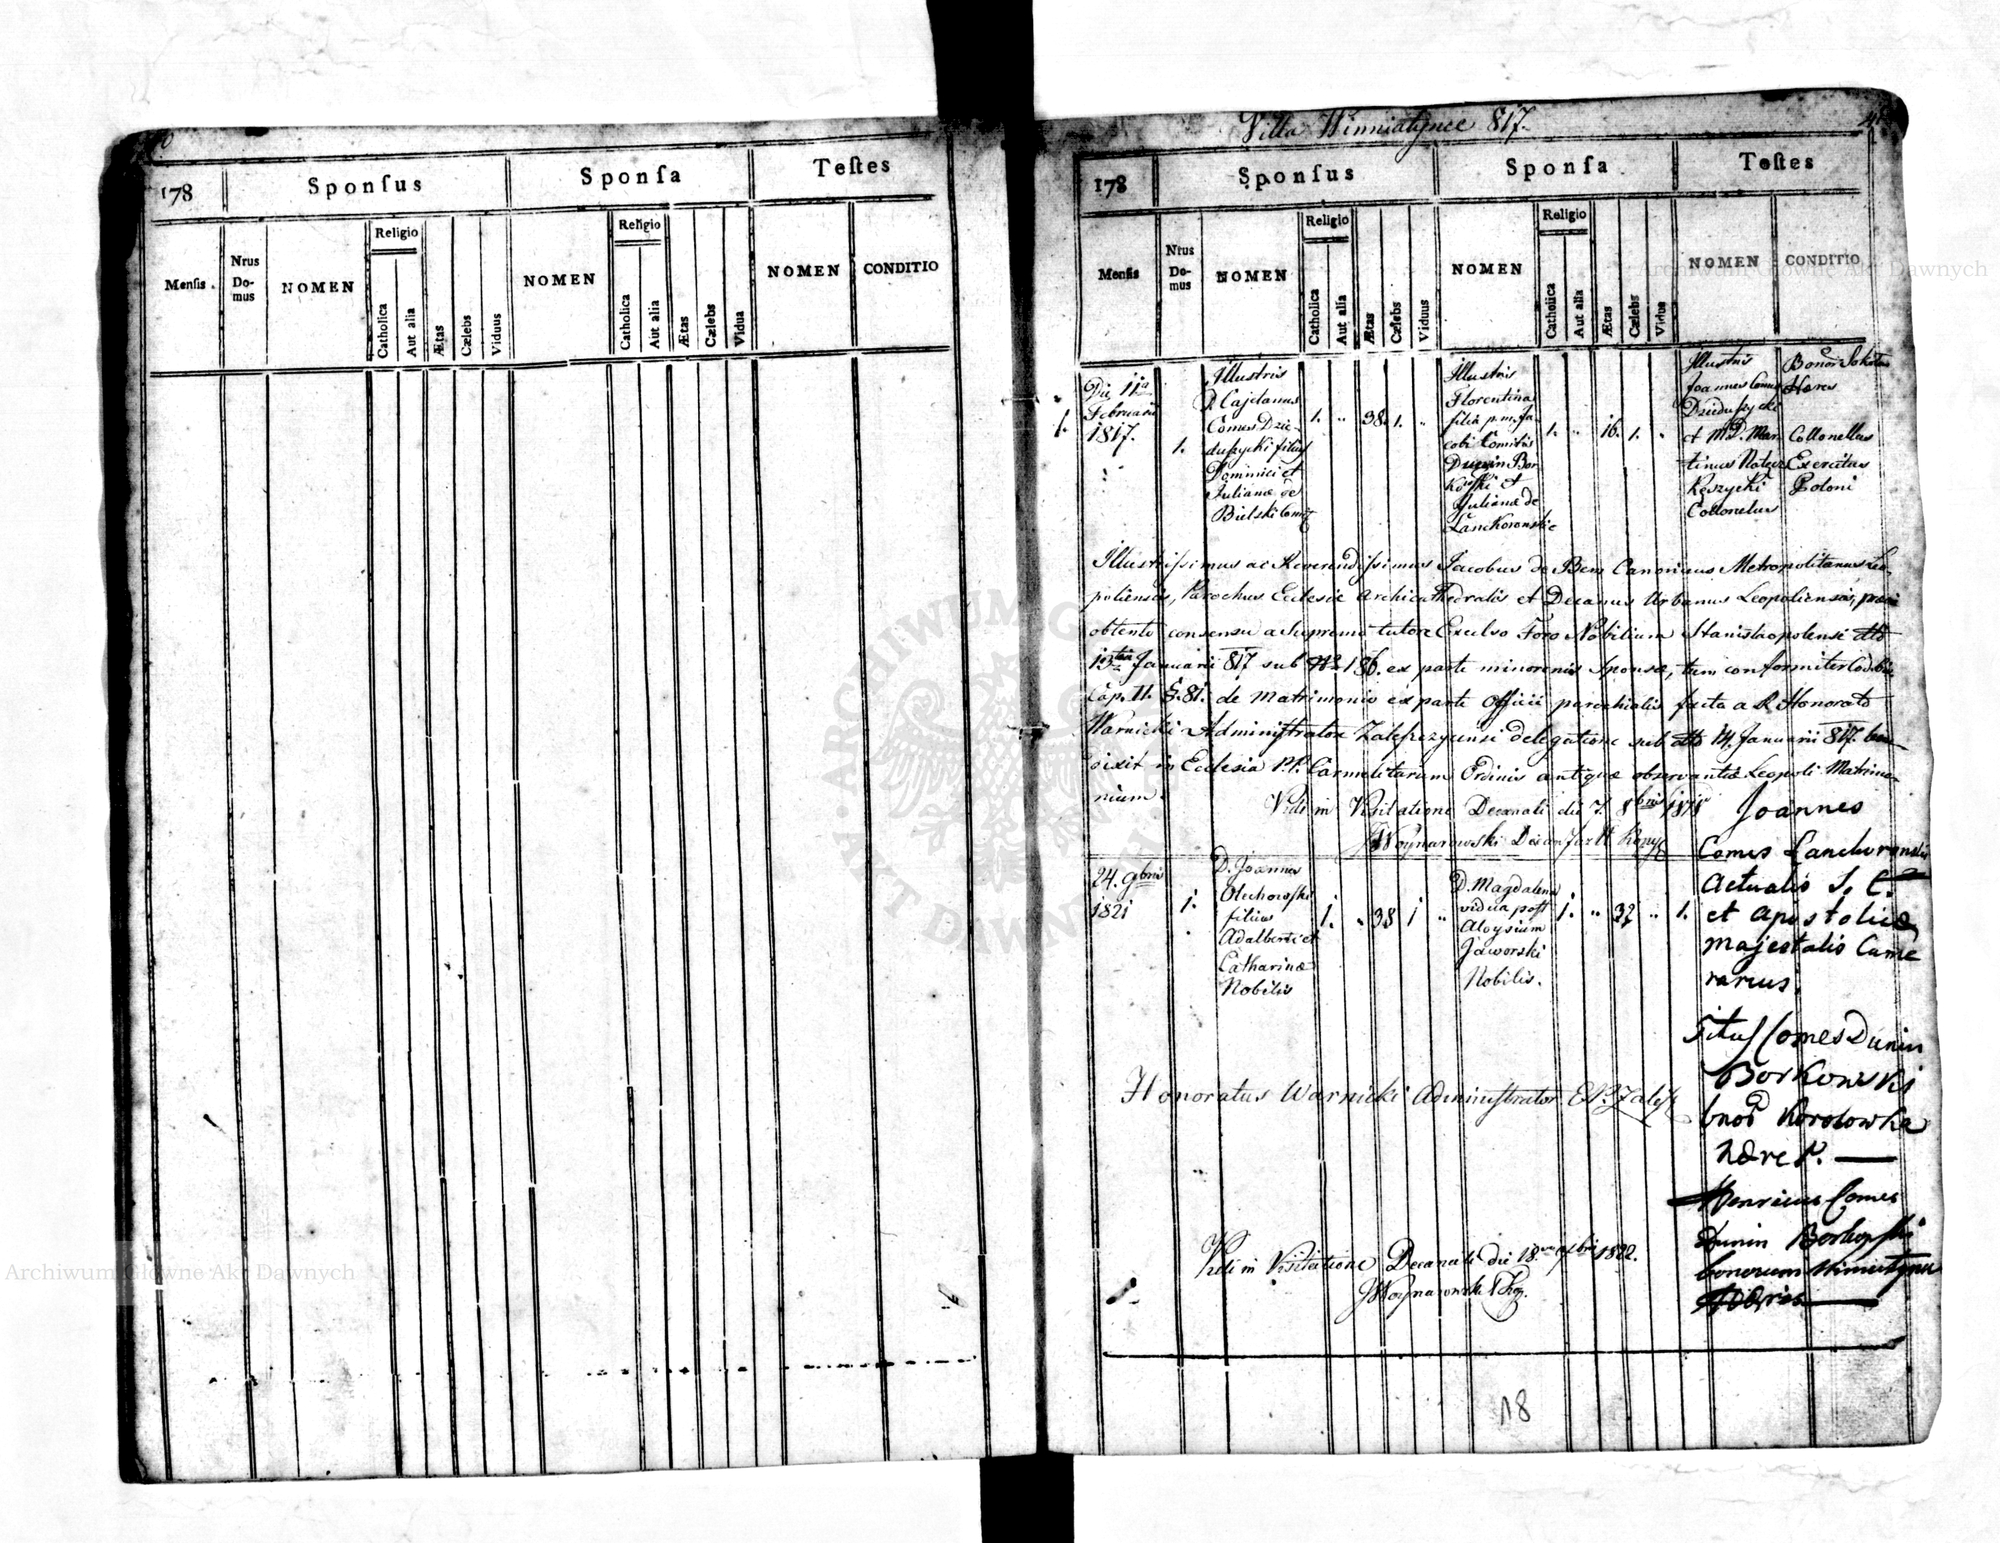 178
Sponſus
Sponſa
Teſtes
Menſis.
Nrus Do-
mus
NOMEN
Religio
Catholica
Aut alia
Ætas
Cælebs
Viduus
NOMEN
Religio
Catholica
Aut alia
Ætas
Cælebs
Vidua
NOMEN
CONDITIO
Villa Winniatynce 817.
178
Sponſus
Sponſa
Teſtes
Menſis
Nrus Do-
mus
NOMEN
Religio
Catholica
Aut alia
Ætas
Cælebs
Viduus
NOMEN
Religio
Catholica
Aut alia
Ætas
Cælebs
Vidua
NOMEN
CONDITIO
1.
Die 11a
Februarii
1817.
1.
Illustris
D. Cajetanus
Comes Dzie-
duszycki filius
Dominici et
Julianæ de
Bielski Comit
1. " 38. 1. "
Illustris
Florentina
filia p.m. Ja-
cobi Comitis
Dunin Bor
kowski et
Julianæ de
Lanckoronskie
1. " 16. 1. "
Illustris
Joannes Comes
Dzieduszycki
et M.D. Mar
tinus
Keszycki
Collonelus
Bonor Sokol
Hæres
Collonellus
Exercitus
Poloni
Illustrissimus ac Reverendissimus Jacobus de Bem Canonicus Metropolitanus Leo-
poliensis, Parochus Eclesiæ Archicathedralis et Decanus Urbanus Leopoliensis,
obtento consensu a Supremo tutore Excelso Foro Nobilium Stanislaopolensi dtto
13tia Januarii 817 sub No 186. ex parte minorenis Sponsæ, tum conformiter
Cap. 11. §. 81. de Matrimonio ex parte Officii parochialis facta a R. Honorato
Warnicki Administratore Zaleszczycensi delegatione sub dtto 14. Januarii 817. bene-
dixit in Eclesia P.P. Carmelitarum Ordinis antiquæ observantiæ Leopoli Matrimo-
nium.
Vidi in Visitatione Decanali die 7. 8bris 1818
JWoynarowski
24. 9bris
1821
1.
D. Joannes
Olechowski
filius
Adalberti et
Catharinæ
Nobilis
1. " 38 1 "
D. Magdalena
vidua post
Aloysium
Jaworski
Nobilis.
1. " 32 " 1.
Joannes
Comes Lanckoronski
Actualis S. C.
et Apostolicæ
majestatis Came
rarius.
Titus Comes Dunin
Borkowski
Korolowka
Hæres. —
Henricus Comes
Dunin Borkowski
bonorum Winiatynce
Hæres
Honoratus Warnicki Administrator
Vidi in Visitatione Decanali die 18va 1822.
JWoynarowski
18
Archiwum Główne Akt Dawnych
Archiwum Główne Akt Dawnych
ARCHIWUM GŁÓWNE AKT DAWNYCH